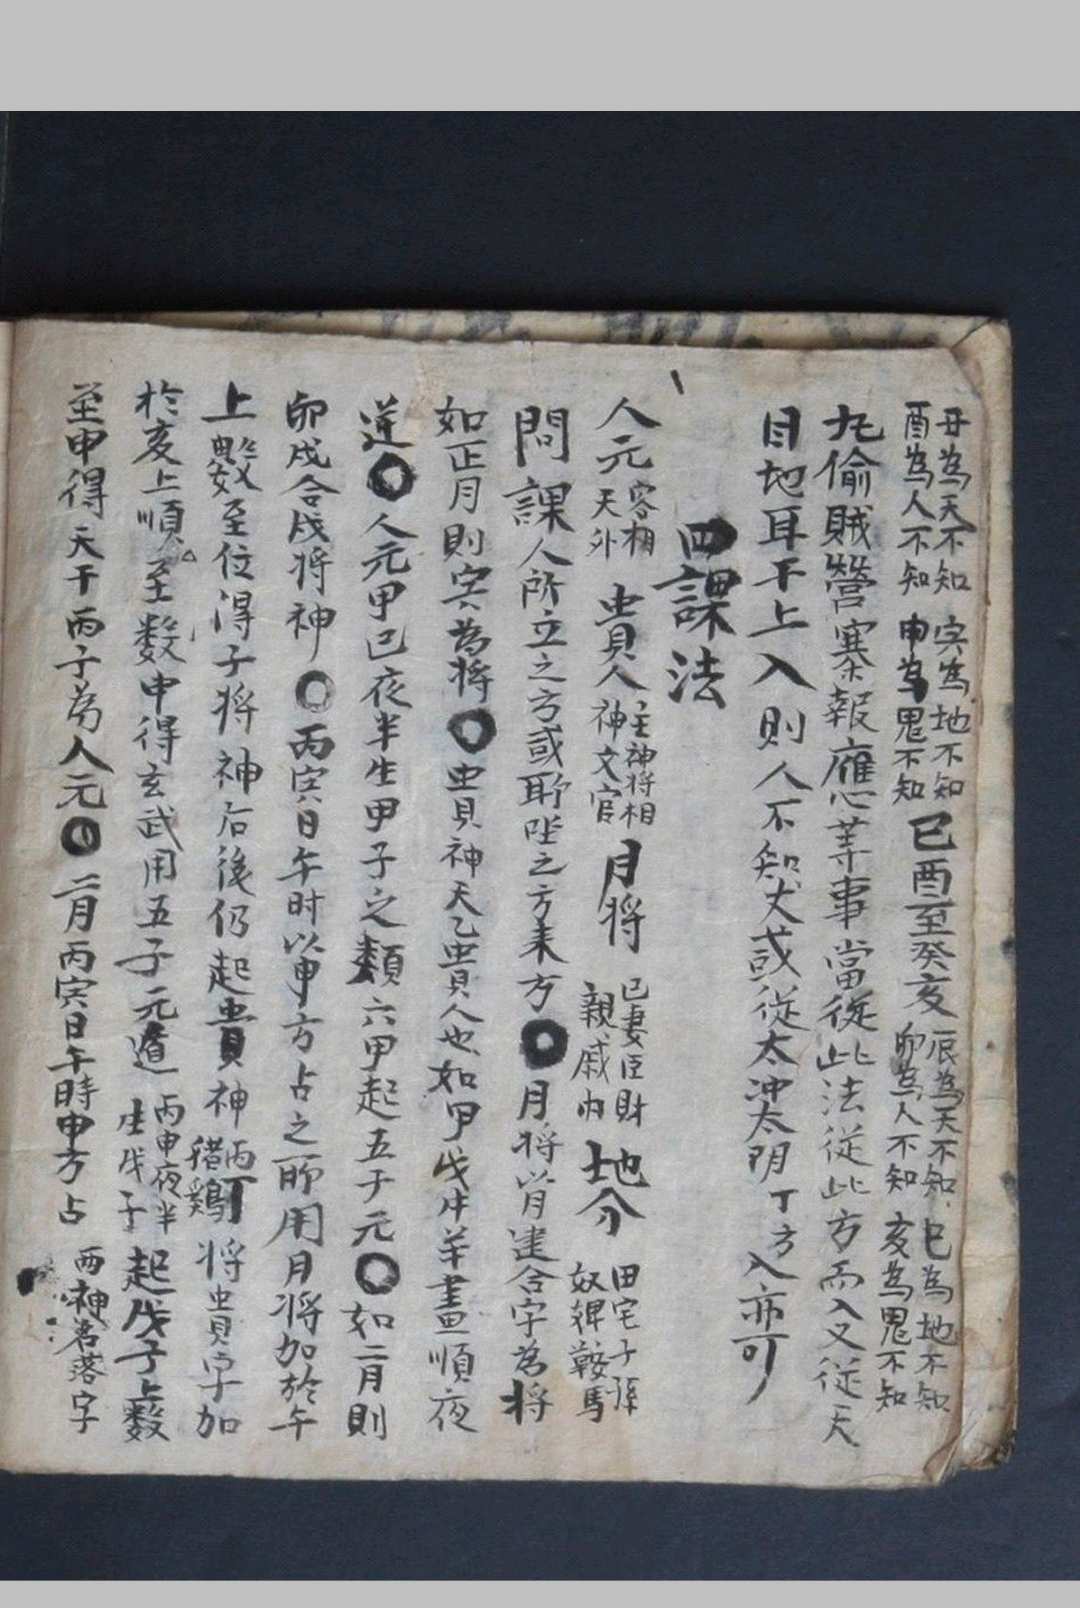 丑為天不知 寅為地不知
酉為人不知 申為鬼不知
己酉至癸亥
辰為天不知 巳為地不知
卯為人不知 亥為鬼不知
凡偷賊營寨報應等事當從此法從此方而入又從天
目地耳干上入則人不知丈或從太冲太阴丁方入亦可
四課法
人元 客相天外 貴人 主神將相神文官 月将 己妻臣財親戚内 地分 田宅子孫奴婢鞍馬
問課人所立之方或所坐之方来方〇月将以月建合字為将
如正月則亥為将〇貴神天乙貴人也如甲戊庚羊晝順夜
逆〇人元甲己夜半生甲子之類六甲起五子元〇如二月則
卯戌合戌将神〇丙寅日午时以申方占之而用月将加於午
上數至位得子将神后後仍起貴神 丙丁猪鷄 将貴字加
於亥上順至數申得玄武用五子元遁 丙申夜半生戊子 起戊子上數
至申得天干丙子為人元〇二月丙寅日午時申方占 两神名落字